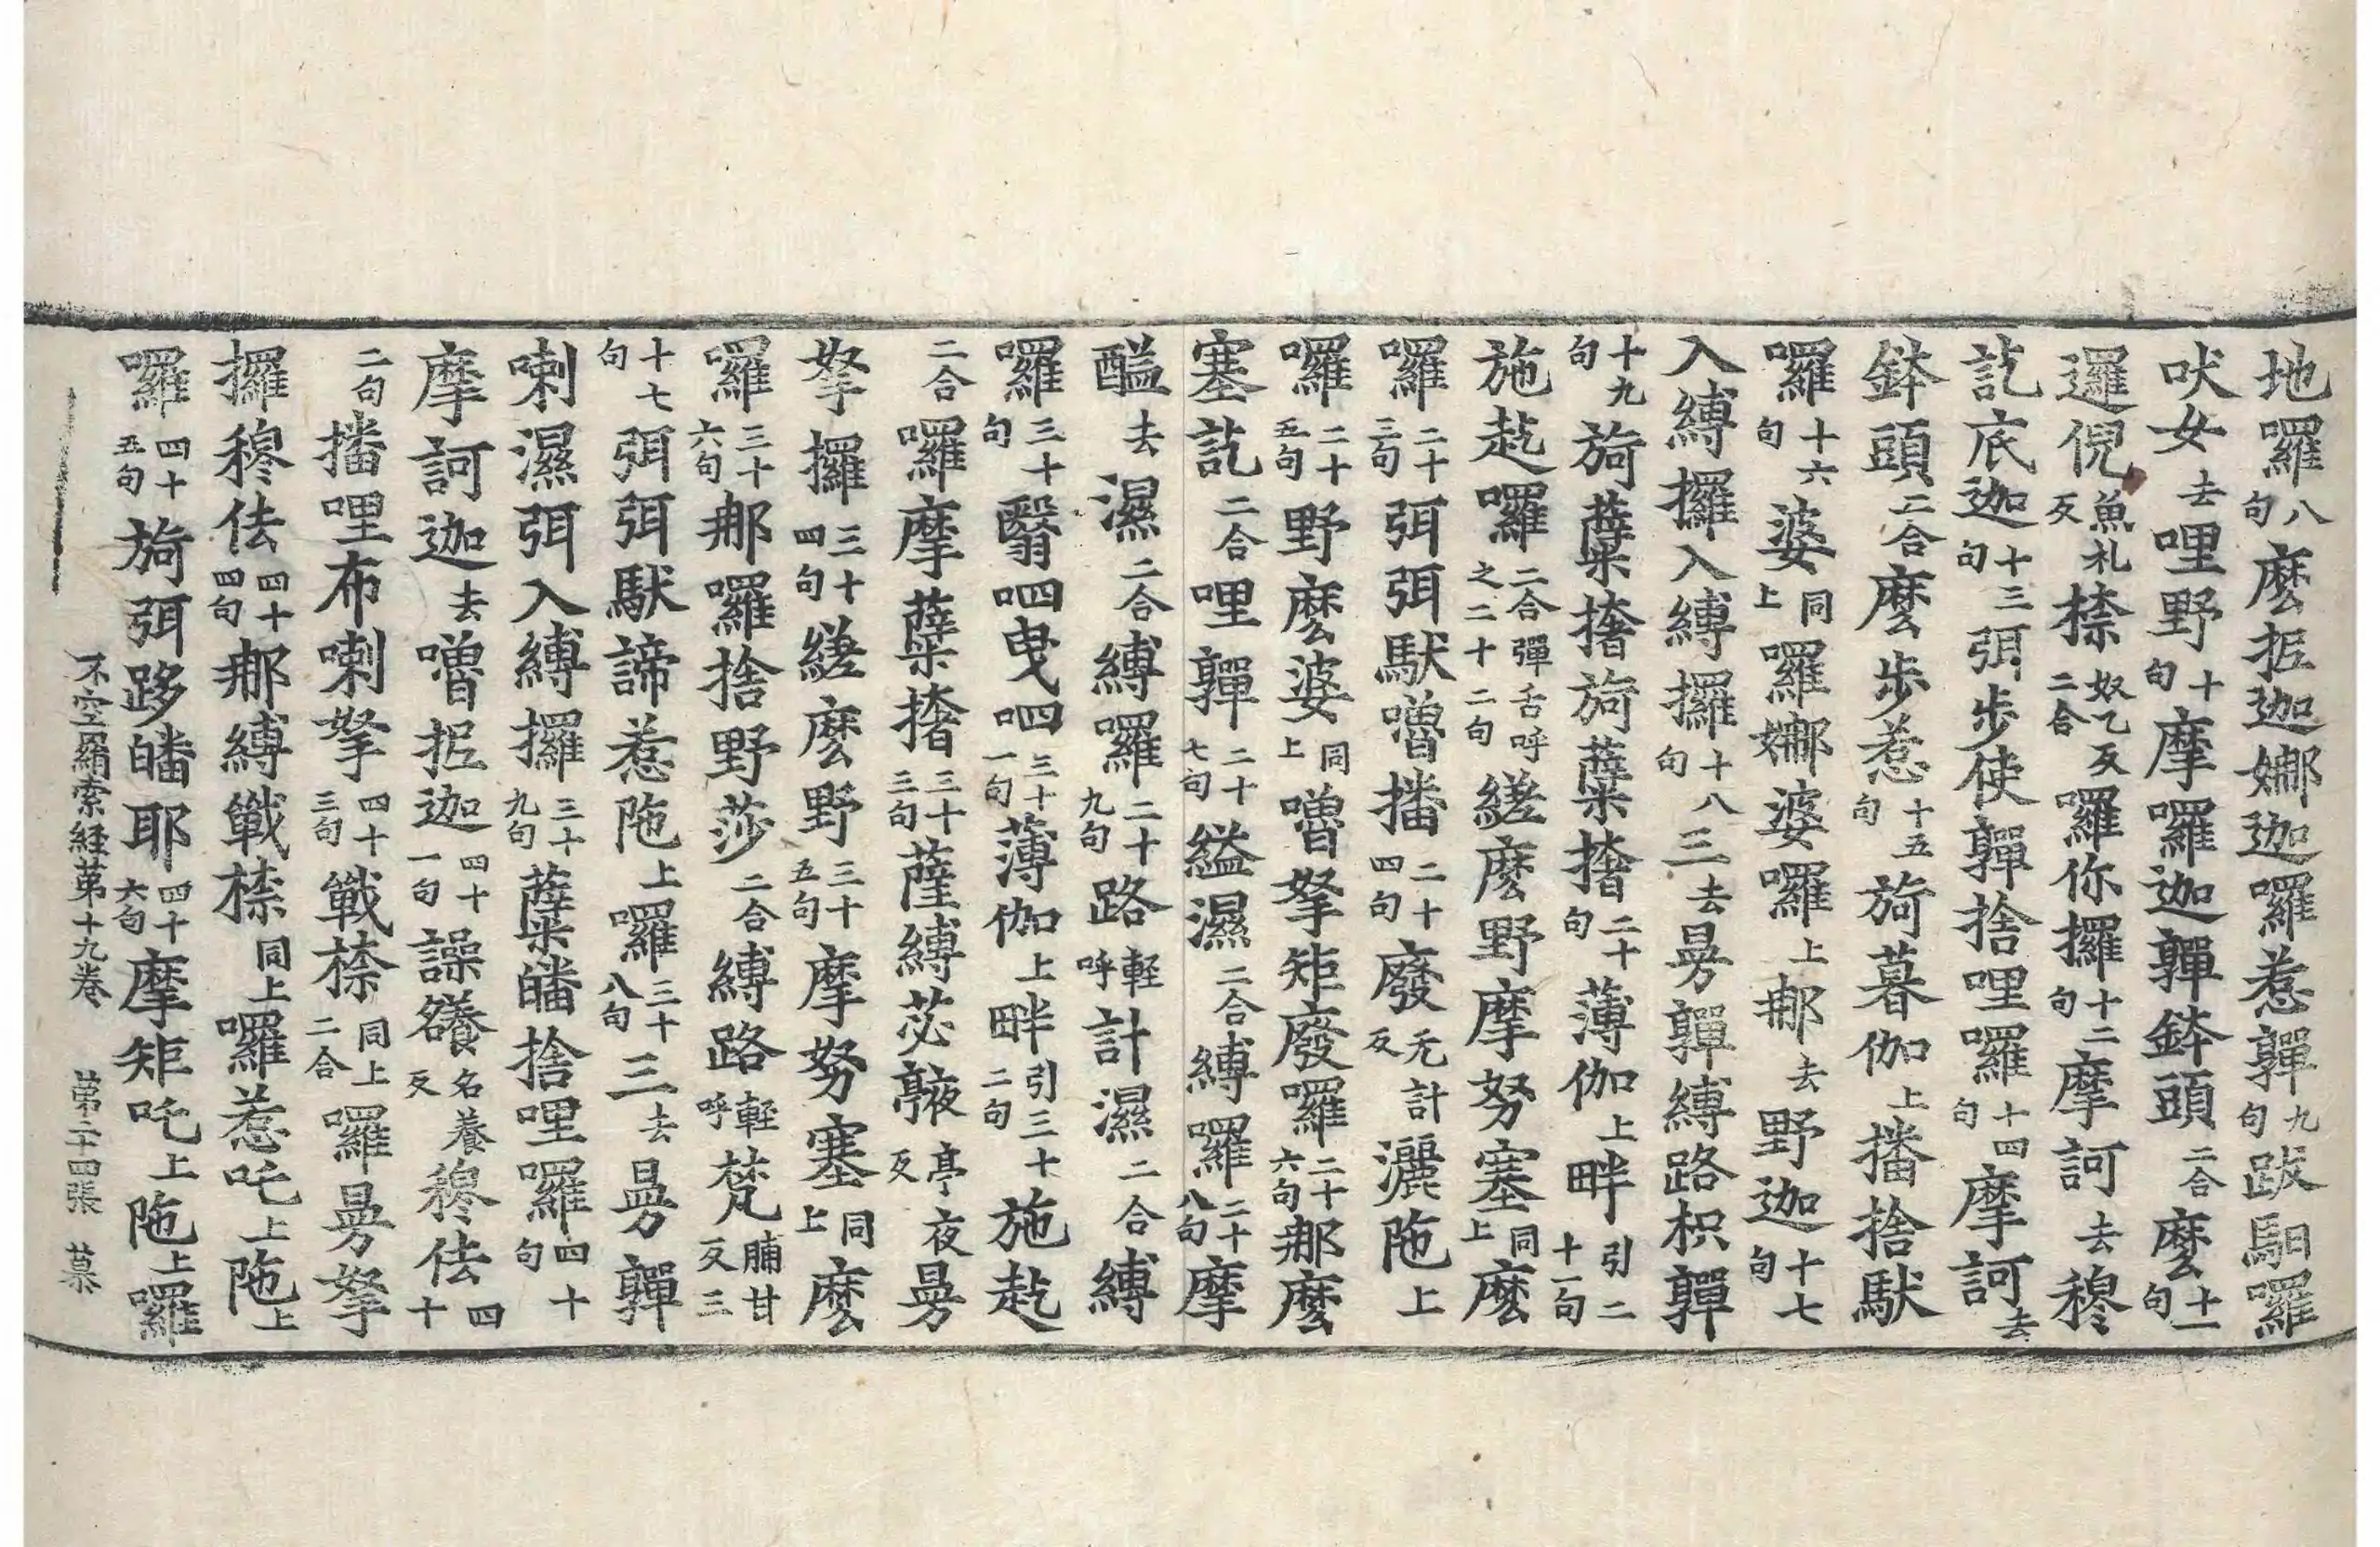 地囉八句麼抳迦娜迦囉惹嚲九句跋馹囉
吠女去哩野十句摩囉迦嚲鉢頭二合麼十一句
邏倪魚礼反捺奴乙反二合囉你攞十二句摩訶去穆
訖底迦十三句弭步使嚲捨哩囉十四句摩訶去
鉢頭二合麼步惹十五句旖暮伽上播捨馱
囉十六句婆同上囉娜婆囉上郍去野迦十七句
入縛攞入縛攞十八句三去曼嚲縛路枳嚲
十九句旖薩㮈撦旖薩㮈撦二十句薄伽上畔引二十一句
施訖囉二合彈舌呼之二十二句縒麼野摩努塞同上麼
囉二十三句弭弭馱噌播二十四句廢无計反灑陁上
囉二十五句野麼婆同上噜拏矩廢囉二十六句郍麼
塞訖二合哩嚲二十七句縊濕二合縛囉二十八句摩
醯去濕二合縛囉二十九句路輕呼計濕二合縛
囉三十句翳呬曳呬三十一句薄伽上畔引三十二句施訖
二合囉摩薩㮈撦三十三句薩縛苾㢡亭夜反曼
拏攞三十四句縒麼野三十五句摩努塞同上麼
囉三十六句郍囉捨野莎二合縛路輕呼梵脯甘反三
十七句弭弭馱諦惹陁上囉三十八句三去曼嚲
喇濕弭入縛攞三十九句薩㮈皤捨哩囉四十句
摩訶迦去噌抳迦四十一句譟䉃名養反穆佉四十
二句播哩布喇拏四十三句戰捺同上二合囉曼拏
攞穆佉四十四句郍縛戰捺同上囉惹吒上陁上
囉四十五句旖弭跢皤耶四十六句摩矩吒上陁上囉
不空羂索経第十九卷　第二十四張　慕